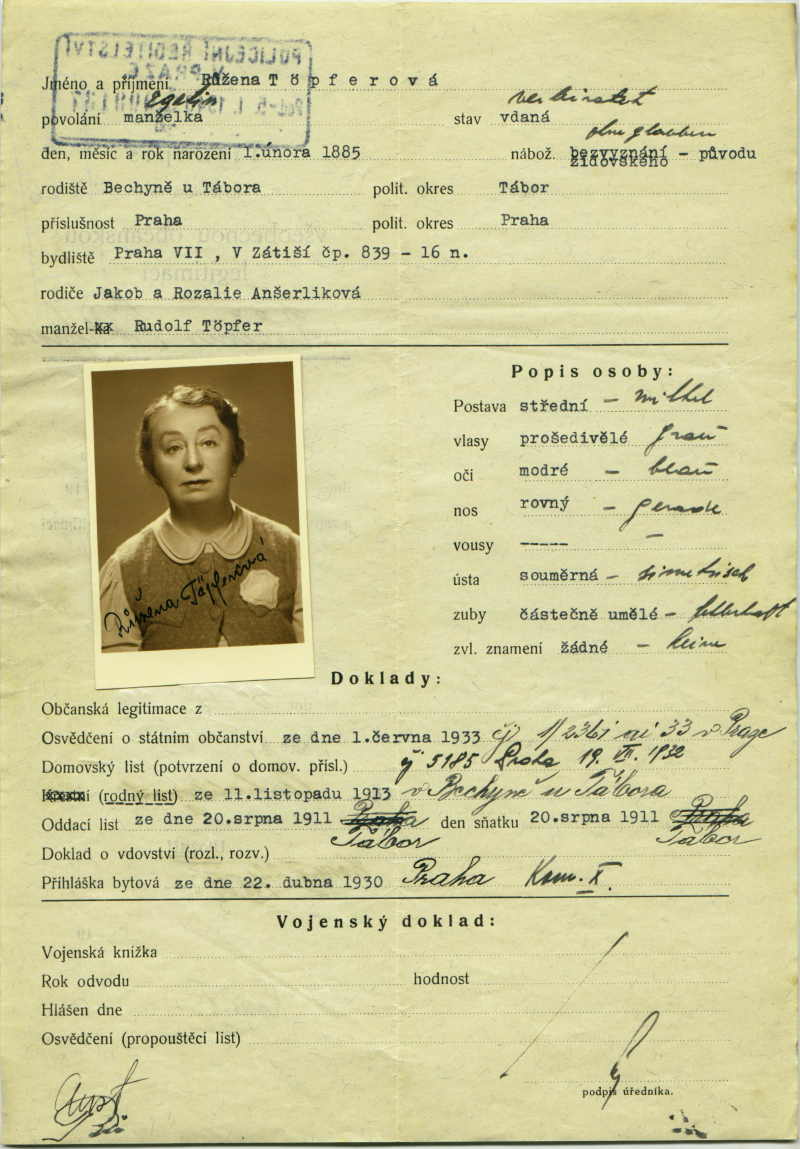 Jméno a příjmení Růžena Töpferová
povolání manželka stav vdaná
den, měsíc a rok narození 1.února 1885 nábož. bezvyznání – původu
židovského
rodiště Bechyně u Tábora polit. okres Tábor
příslušnost Praha polit. okres Praha
bydliště Praha VII , V Zátiší čp. 839 – 16 n.
rodiče Jakob a Rozalie Anšerliková
manžel-ka Rudolf Töpfer
Popis osoby:
Postava střední – mittel
vlasy prošedivělé grau
oči modré – blau
nos rovný – gerade
vousy ----- –
ústa souměrná – simetrisch
zuby částečně umělé –
zvl. znamení žádné – keine
Růžena Töpferová
Doklady:
Občanská legitimace z
Osvědčení o státním občanství ze dne 1.června 1933 v Praze
Domovský list (potvrzení o domov. přísl.) čj 5185 Praha 19. VII. 1932
(rodný list) ze 11.listopadu 1913 v Bechyně u Tábora
Oddací list ze dne 20.srpna 1911 Praha den sňatku 20.srpna 1911 Praha
Tábor Tábor
Doklad o vdovství (rozl., rozv.)
Přihláška bytová ze dne 22. dubna 1930 Praha Kom. X.
Vojenský doklad:
Vojenská knížka
Rok odvodu hodnost
Hlášen dne
Osvědčení (propouštěcí list)
podpis úředníka.